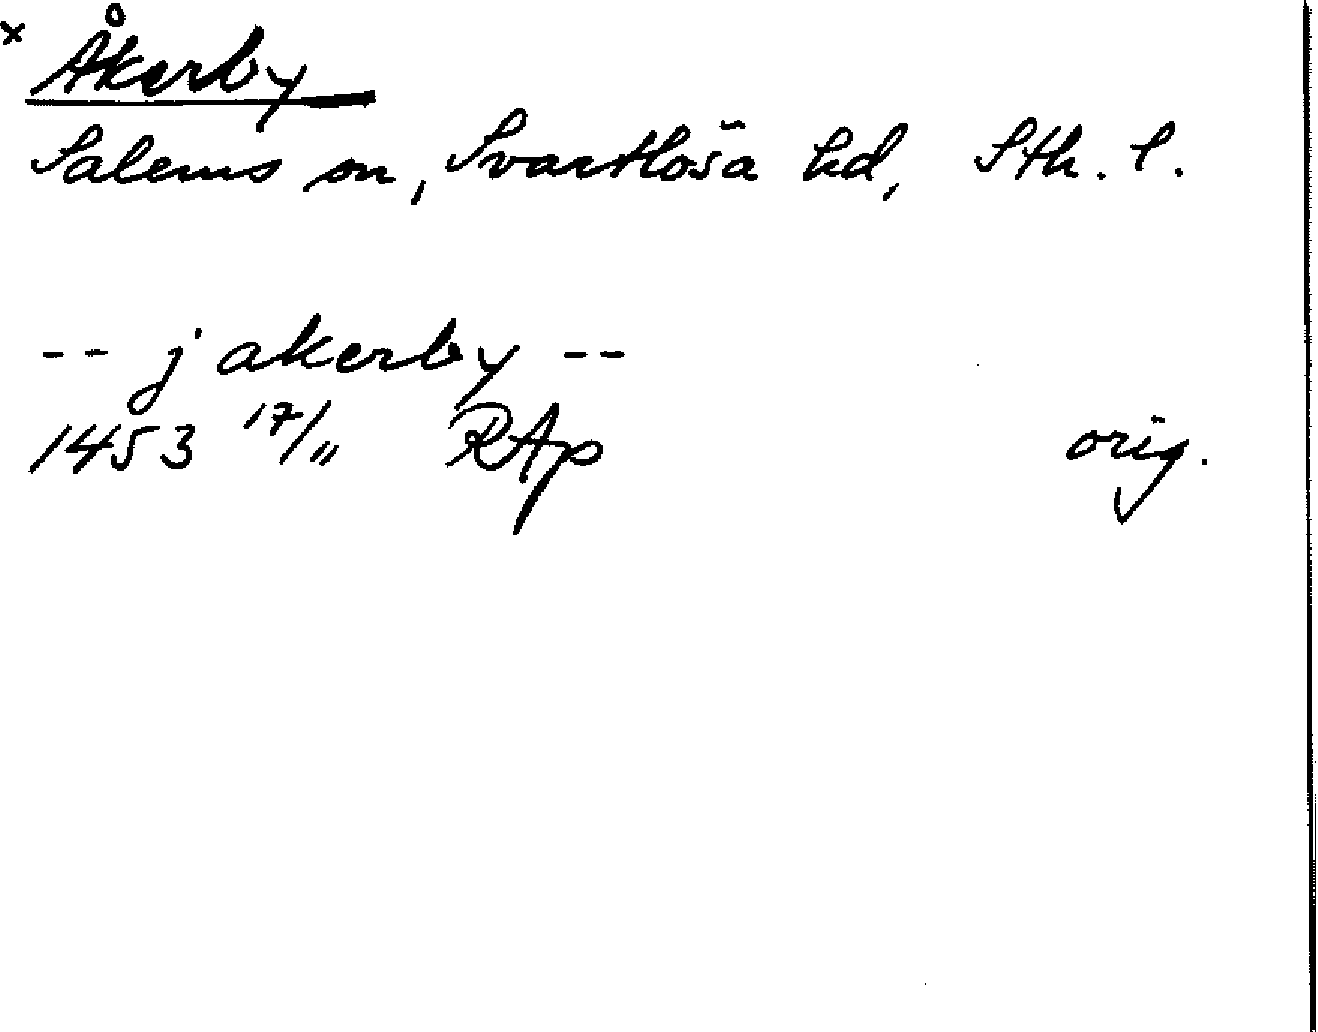 x Åkerby
Salems sn, Svartlösa hd, Sth. l.
-- j akerby --
1453 17/11 RAp orig.